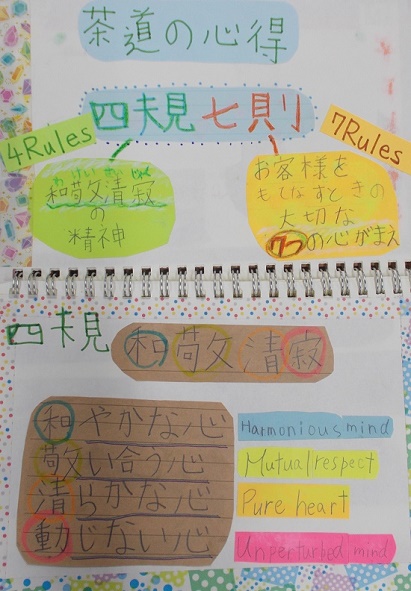 茶道の心得
四規七則
4Rules
7Rules
わけいせいじゃく
和敬清寂
の
精神
お客様を
もてなすときの
大切な
7つの心がまえ
四規 和敬清寂
和やかな心 Harmonious mind
敬い合う心 Mutual respect
清らかな心 Pure heart
動じない心 Unperturbed mind